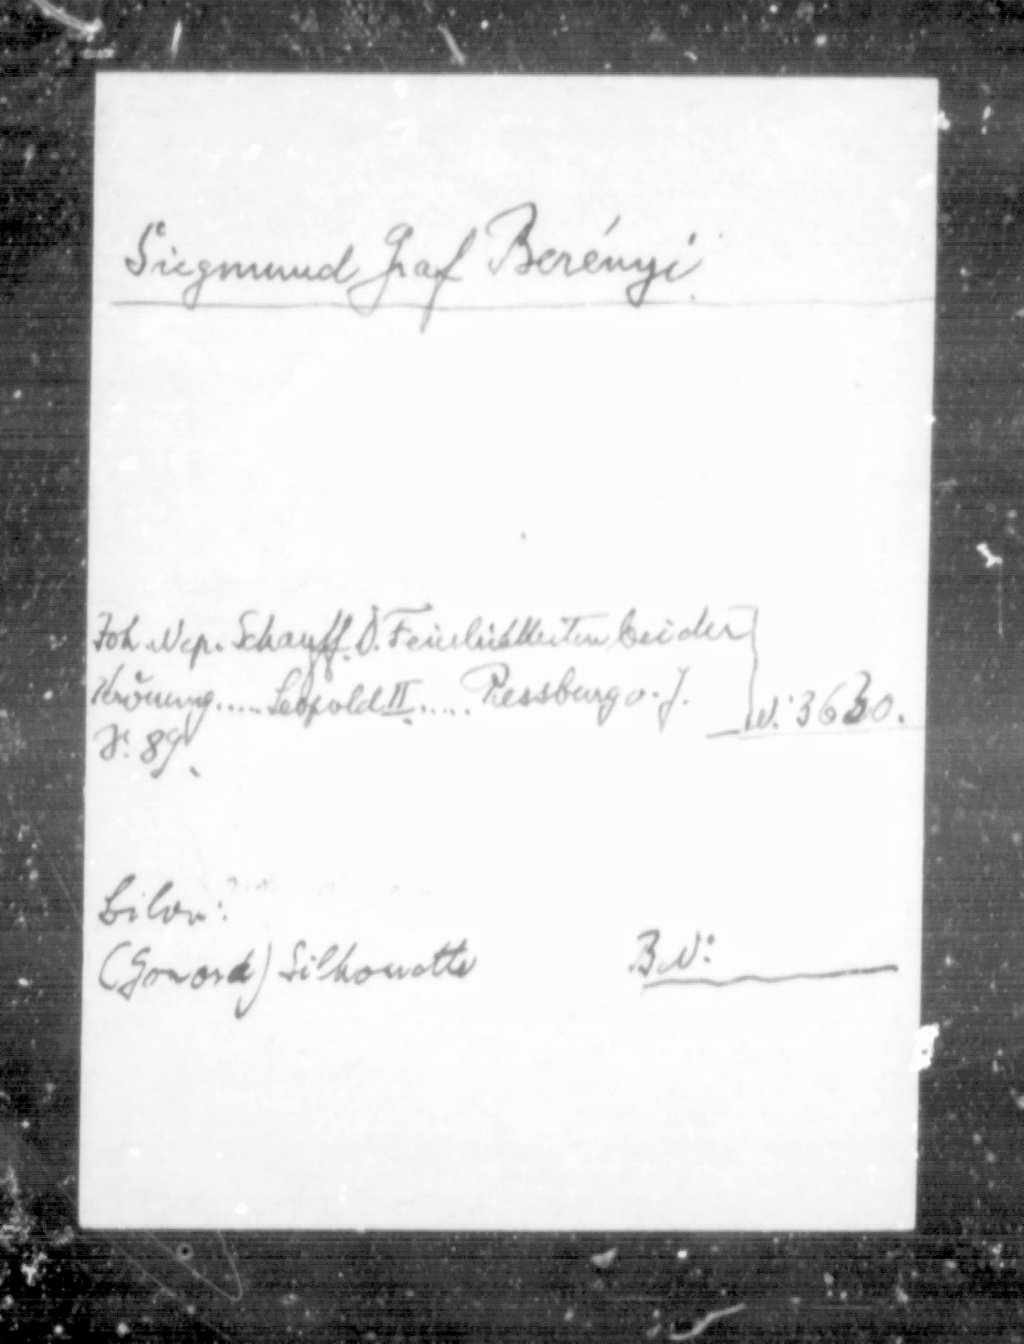 Siegmund Graf Berényi.
Joh. Nep. Schauff. D. Feierlichkeiten bei der
Krönung..... Leopold II ..... Pressburg o. J.
N: 3630.
89
Silhouette
B.N: